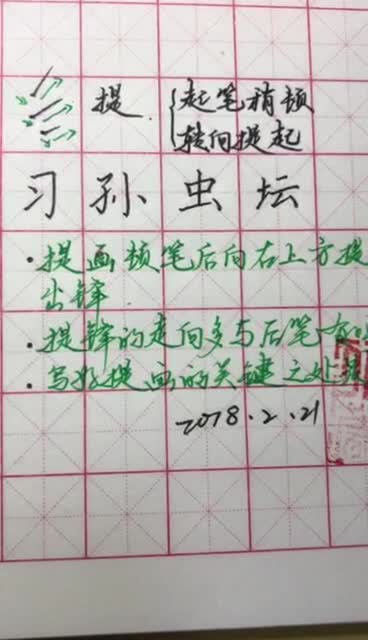 提 起笔稍顿
转向提起
习孙虫坛
·提画顿笔后向右上方提
出锋
·提锋的走向多与后笔有
·写好提画的关键之处
2018.2.21